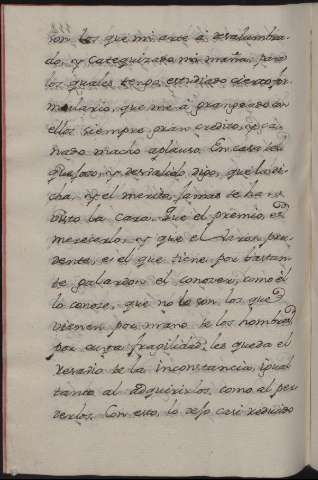 son los que mi arte à desalumbra-
do, y Catequizado mi maña; para
los quales tengo estudiado cierto for-
mulario, que me à grangeado con
ellos siempre gran credito, y ga-
nado mucho aplauso. En caso de
quexoso, y desvalido digo, que la di-
cha, y el merito, jamas se han
visto la Cara. Que el premio, es
merecerlo, y que el Varon pru-
dente, es el que tiene por bastan-
te galardon el conocer, como èl
lo conoce, que no lo son los que
vienen por mano de los hombres
por cuya fragilidad, les queda el
resavio de la inconstancia, igual
tanto al adquirirlos, como al per-
derlos. Con esto, lo dejo casi reducido